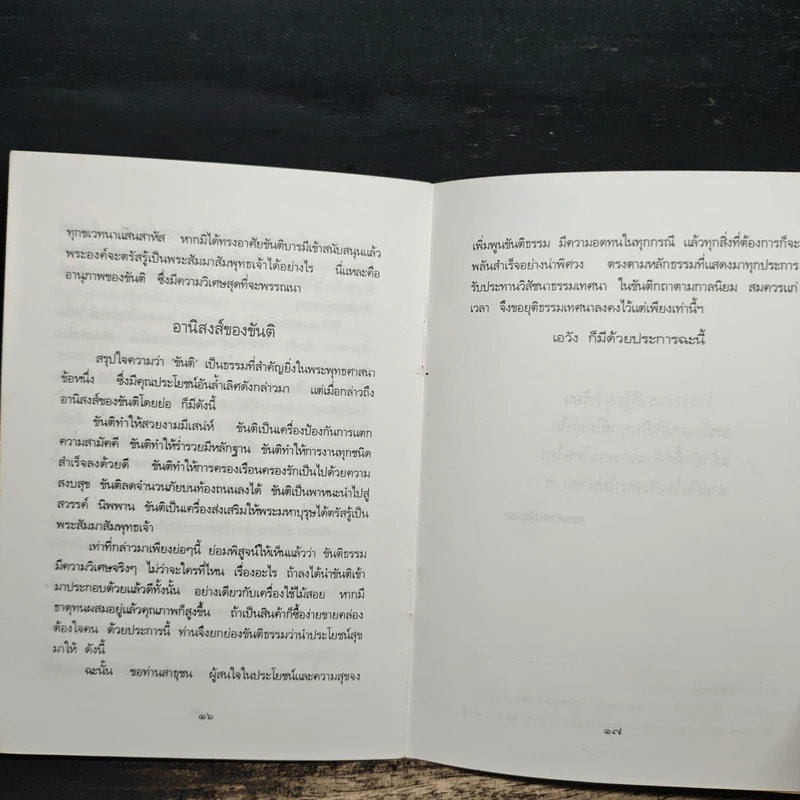 ทุกขเวทนาแสนสาหัส หากมิได้ทรงอาศัยขันติบารมีเข้าสนับสนุนแล้ว
พระองค์จะตรัสรู้เป็นพระสัมมาสัมพุทธเจ้าได้อย่างไร นี่แหละคือ
อานุภาพของขันติ ซึ่งมีความวิเศษสุดที่จะพรรณนา
อานิสงส์ของขันติ
สรุปใจความว่า 'ขันติ' เป็นธรรมที่สำคัญยิ่งในพระพุทธศาสนา
ข้อหนึ่ง ซึ่งมีคุณประโยชน์อันล้ำเลิศดังกล่าวมา แต่เมื่อกล่าวถึง
อานิสงส์ของขันติโดยย่อ ก็มีดังนี้
ขันติทำให้สวยงามมีเสน่ห์ ขันติเป็นเครื่องป้องกันการแตก
ความสามัคคี ขันติทำให้ร่ำรวยมีหลักฐาน ขันติทำให้การงานทุกชนิด
สำเร็จลงด้วยดี ขันติทำให้การครองเรือนครองรักเป็นไปด้วยความ
สงบสุข ขันติลดจำนวนภัยบนท้องถนนลงได้ ขันติเป็นพาหนะนำไปสู่
สวรรค์ นิพพาน ขันติเป็นเครื่องส่งเสริมให้พระมหาบุรุษได้ตรัสรู้เป็น
พระสัมมาสัมพุทธเจ้า
เท่าที่กล่าวมาเพียงย่อๆนี้ ย่อมพิสูจน์ให้เห็นแล้วว่า ขันติธรรม
มีความวิเศษจริงๆ ไม่ว่าจะใครที่ไหน เรื่องอะไร ถ้าลงได้นำขันติเข้า
มาประกอบด้วยแล้วดีทั้งนั้น อย่างเดียวกับเครื่องใช้ไม้สอย หากมี
ธาตุทนผสมอยู่แล้วคุณภาพก็สูงขึ้น ถ้าเป็นสินค้าก็ซื้อง่ายขายคล่อง
ต้องใจคน ด้วยประการนี้ ท่านจึงยกย่องขันติธรรมว่านำประโยชน์สุข
มาให้ ดังนี้
ฉะนั้น ขอท่านสาธุชน ผู้สนใจในประโยชน์และความสุขจง
๑๖
เพิ่มพูนขันติธรรม มีความอดทนในทุกกรณี แล้วทุกสิ่งที่ต้องการก็จะ
พลันสำเร็จอย่างน่าพิศวง ตรงตามหลักธรรมที่แสดงมาทุกประการ
รับประทานวิสัชนาธรรมเทศนา ในขันติกถาตามกาลนิยม สมควรแก่
เวลา จึงขอยุติธรรมเทศนาลงคงไว้แต่เพียงเท่านี้ฯ
เอวัง ก็มีด้วยประการฉะนี้
๑๗